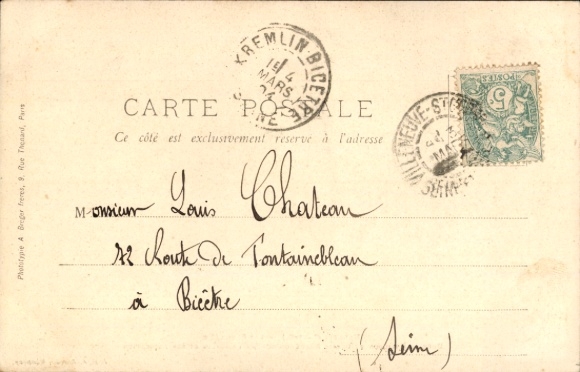 KREMLIN-BICETRE
15 4
MARS
04
SEINE
POSTES
5
VILLENEUVE-ST
CARTE POSTALE
Ce côté est exclusivement réservé à l'adresse
Monsieur Louis Chateau
72 Route de Fontainebleau
à Bicêtre
(Seine)
Phototypie A. Breger frères, 9, Rue Thénard, Paris